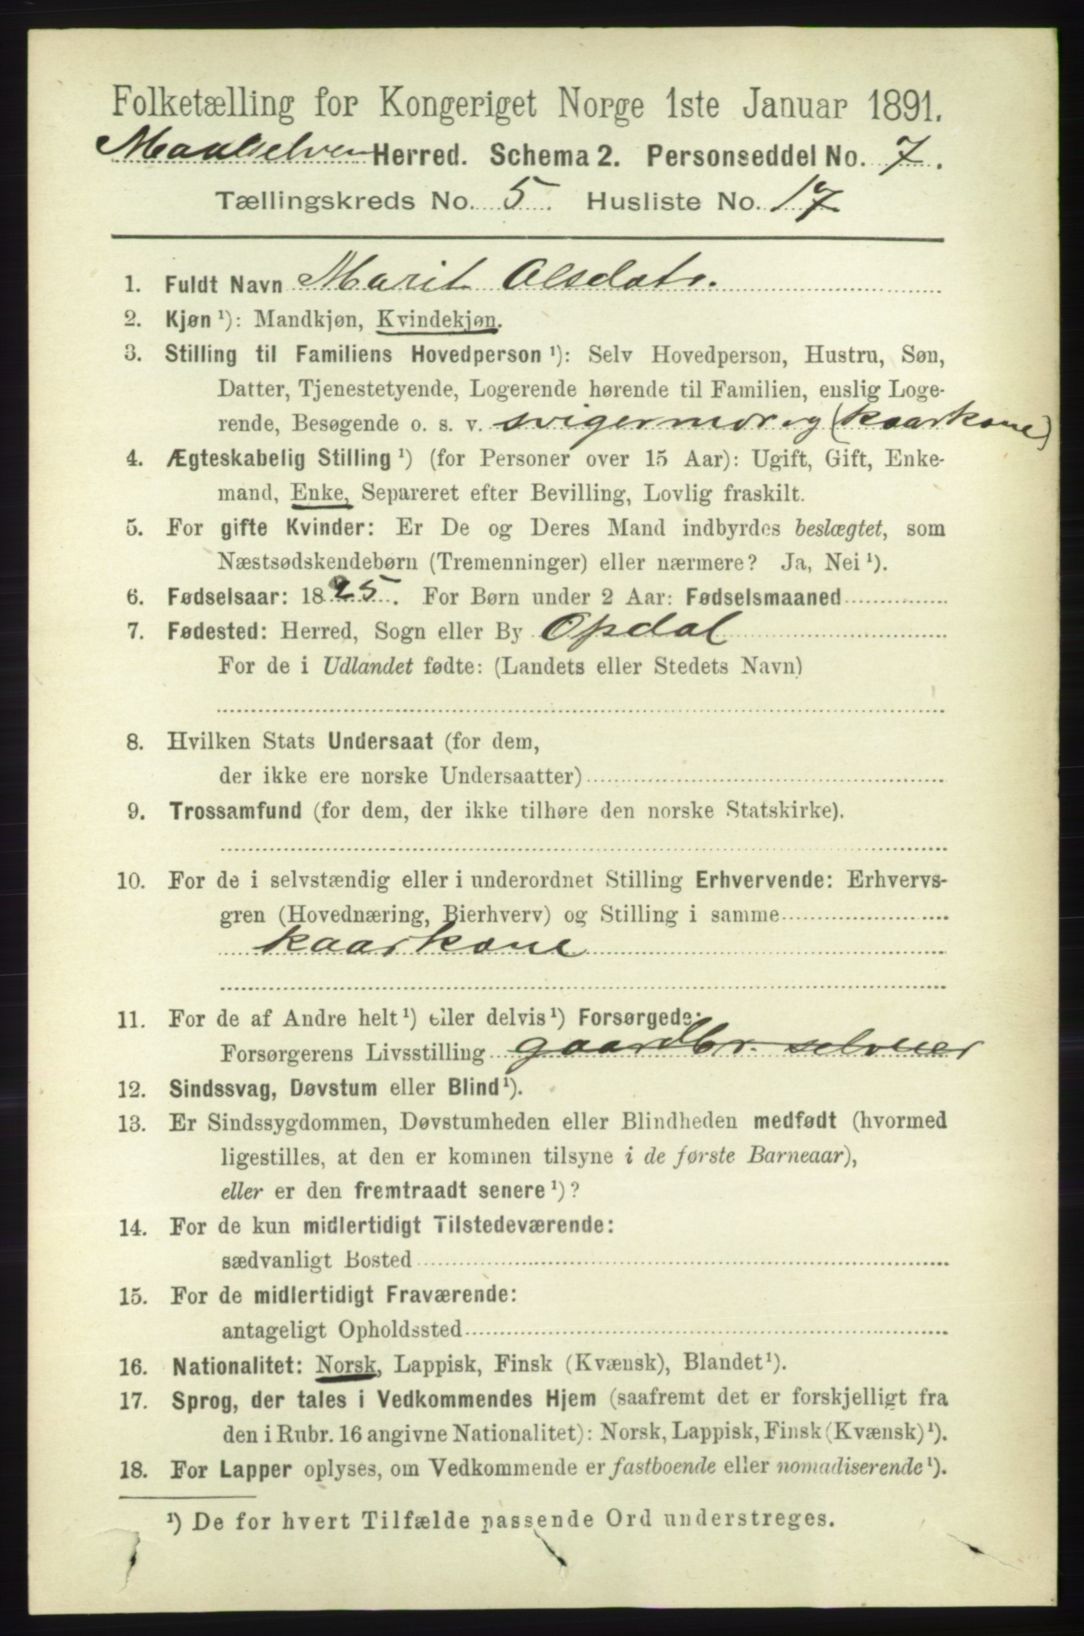 Folketælling for Kongeriget Norge 1ste Januar 1891.
Maalselven Herred. Schema 2. Personseddel No. 7.
Tællingskreds No. 5. Husliste No. 17
1. Fuldt Navn Marit Olsdatr.
2. Kjøn ¹): Mandkjøn, Kvindekjøn.
3. Stilling til Familiens Hovedperson ¹): Selv Hovedperson, Hustru, Søn,
Datter, Tjenestetyende, Logerende hørende til Familien, enslig Loge-
rende, Besøgende o. s. v. svigermor og (kaarkone)
4. Ægteskabelig Stilling ¹) (for Personer over 15 Aar): Ugift, Gift, Enke-
mand, Enke, Separeret efter Bevilling, Lovlig fraskilt.
5. For gifte Kvinder: Er De og Deres Mand indbyrdes beslægtet, som
Næstsødskendebørn (Tremenninger) eller nærmere? Ja, Nei ¹).
6. Fødselsaar: 1825. For Børn under 2 Aar: Fødselsmaaned
7. Fødested: Herred, Sogn eller By Opdal
For de i Udlandet fødte: (Landets eller Stedets Navn)
8. Hvilken Stats Undersaat (for dem,
der ikke ere norske Undersaatter)
9. Trossamfund (for dem, der ikke tilhøre den norske Statskirke).
10. For de i selvstændig eller i underordnet Stilling Erhvervende: Erhvervs-
gren (Hovednæring, Bierhverv) og Stilling i samme
kaarkone
11. For de af Andre helt ¹) eller delvis ¹) Forsørgede:
Forsørgerens Livsstilling gaardbr. selveier
12. Sindssvag, Døvstum eller Blind ¹).
13. Er Sindssygdommen, Døvstumheden eller Blindheden medfødt (hvormed
ligestilles, at den er kommen tilsyne i de første Barneaar),
eller er den fremtraadt senere ¹)?
14. For de kun midlertidigt Tilstedeværende:
sædvanligt Bosted
15. For de midlertidigt Fraværende:
antageligt Opholdssted
16. Nationalitet: Norsk, Lappisk, Finsk (Kvænsk), Blandet ¹).
17. Sprog, der tales i Vedkommendes Hjem (saafremt det er forskjelligt fra
den i Rubr. 16 angivne Nationalitet): Norsk, Lappisk, Finsk (Kvænsk) ¹).
18. For Lapper oplyses, om Vedkommende er fastboende eller nomadiserende ¹).
¹) De for hvert Tilfælde passende Ord understreges.